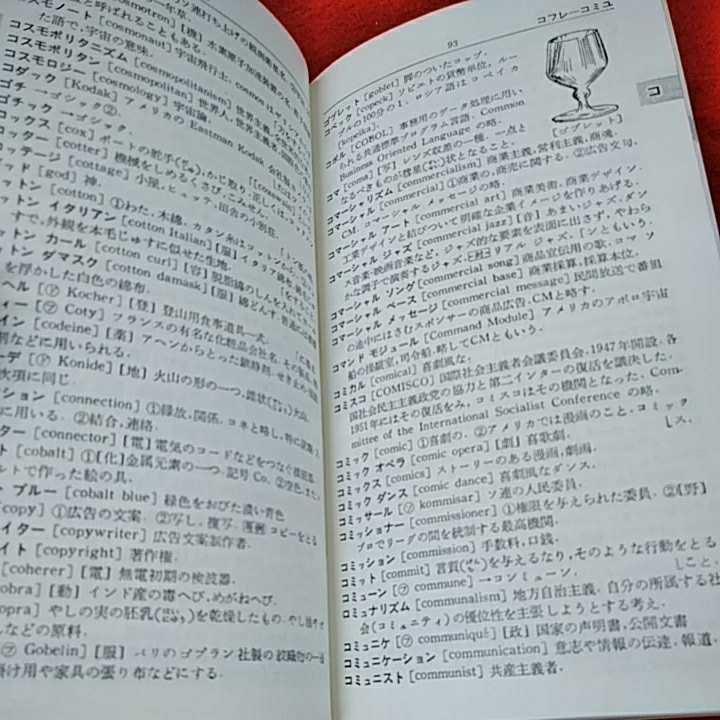 コスモノート [cosmonaut] 宇宙飛行士.
た語で,宇宙の意味.
コスモポリタニズム [cosmopolitanism] 世界主義
コスモポリタン [cosmopolitan] 世界人
コスモロジー [cosmology] 宇宙論.
コダック [Kodak] アメリカの Eastman Kodak 会社
ゴチ →ゴシック②.
ゴチック →ゴシック.
コックス [cox] ボートの舵手
コッター [cotter] 機械をしめるくさび,こみせん.
コッテージ [cottage] 小屋,ヒュッテ,田舎の小別荘.
ッド [god] 神.
ットン [cotton] ①わた,木綿.カタン糸は
ットン イタリアン [cotton Italian] [服]
すで,外観を本毛じゅすに似せた生地.
ットン カール [cotton curl] [容] 脱脂綿のしんを入れて
ットン ダマスク [cotton damask] [服] 綿どんす.
を浮かした白色の綿布.
ヘル [㋣ Kocher] [登] 登山用食事道具一式.
ィー [㋫ Coty] フランスの有名な化粧品会社名.
イン [codeine] [薬] アヘンからとった鎮静剤.
剤などに用いられる.
ーデ [㋣ Konide] [地] 火山の形の一つ.
次項に同じ.
ション [connection] ①縁故,関係.コネと略し,特に
に用いる.②結合,連絡.
ター [connector] [電] 電気のコードなどをつなぐ接続器
ト [cobalt] ①[化]金属元素の一つ.記号 Co. ②空色.
ルトで作った絵の具.
ト ブルー [cobalt blue] 緑色をおびた濃い青色
copy] ①広告の文案.②写し,複写.
イター [copywriter] 広告文案製作者.
イト [copyright] 著作権.
coherer] [電] 無電初期の検波器.
obra] [動] インド産の毒へび,めがねへび.
opra] やしの実の胚乳を乾燥したもの.
などの原料.
㋫ Gobelin] [服] パリのゴブラン社製の
け用や家具の張り布などにする.
93
コフレーコミユ
コ
[ゴブレット]
ゴブレット [goblet] 脚のついたコップ.
コペック [copeck] ソビエトの貨幣単位,ルー
ブルの100分の1.ロシア語はコペイカ
[kopeika].
コボル [COBOL] 事務用のデータ処理に用い
られる共通標準プログラム言語. Common
Business Oriented Language の略.
コマ [coma] [写] レンズ収差の一種,一点と
なるべきものが彗星状となること.
コマーシャリズム [commercialism] 商業主義,営利主義,商魂.
コマーシャル [commercial] ①商業の,商売に関する.②広告文句,
CM.コマーシャル メッセージの略.
コマーシャル アート [commercial art] 商業美術,商業デザイン.
工業デザインと結びついて明確な企業イメージを作りあげる.
コマーシャル ジャズ [commercial jazz] [音] あまいジャズ.ダン
ス音楽・映画音楽など,ジャズ的な要素を表面に出さず,やわら
かな調子で演奏するジャズ.
コマーシャル ソング [commercial song] 商品宣伝用の歌.コマ ソ
[ンともいう.
コマーシャル ベース [commercial base] 商業採算,採算本位.
コマーシャル メッセージ [commercial message] 民間放送で番組
の途中にはさむスポンサーの商品広告.CMと略す.
コマンド モジュール [Command Module] アメリカのアポロ宇宙
船の操縦室,司令船.略してCMともいう.
コミカル [comical] 喜劇風な.
コミスコ [COMISCO] 国際社会主義者会議委員会.1947年開設.各
国社会民主主義政党の協力と第二インターの復活を議決した.
1951年にはその復活をみ,コミスコはその機関となった. Com-
mittee of the International Socialist Conference の略.
コミック [comic] ①喜劇の.②アメリカでは漫画のこと.コミック
[ス.
コミック オペラ [comic opera] [劇] 喜歌劇.
コミックス [comics] ストーリーのある漫画,劇画.
コミック ダンス [comic dance] 喜劇風なダンス.
コミッサール [㋺ kommisar] ソ連の人民委員.
コミッショナー [commissioner] ①権限を与えられた委員.②[野]
プロでリーグの間を統制する最高機関.
コミッション [commission] 手数料,口銭.
コミット [commit] 言質を与えるなり,そのような行動をとる
[こと.
コミューン [㋫ commune] →コンミューン.
コミュナリズム [communalism] 地方自治主義.自分の所属する社
会(コミュニティ)の優位性を主張しようとする考え.
コミュニケ [㋫ communiqué] [政] 国家の声明書,公開文書
コミュニケーション [communication] 意志や情報の伝達.報道.
コミュニスト [communist] 共産主義者.